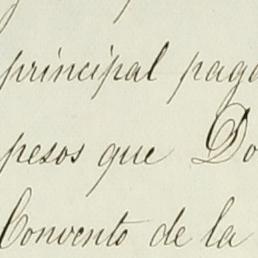 principal paga
pesos que Do
Convento de la